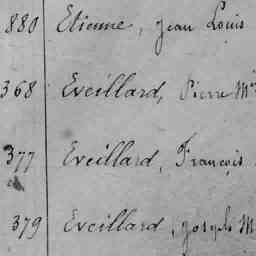 880 Etienne, Jean Louis
368 Eveillard, Pierre M
377 Eveillard, François
379 Eveillard, Joseph M